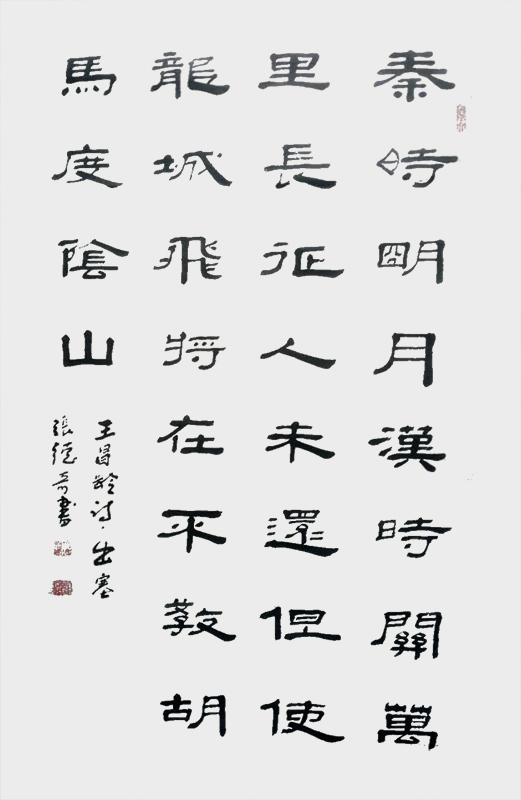 秦時明月漢時關萬
里長征人未還但使
龍城飛将在不教胡
馬度陰山
王昌齡诗·出塞
張德奇書